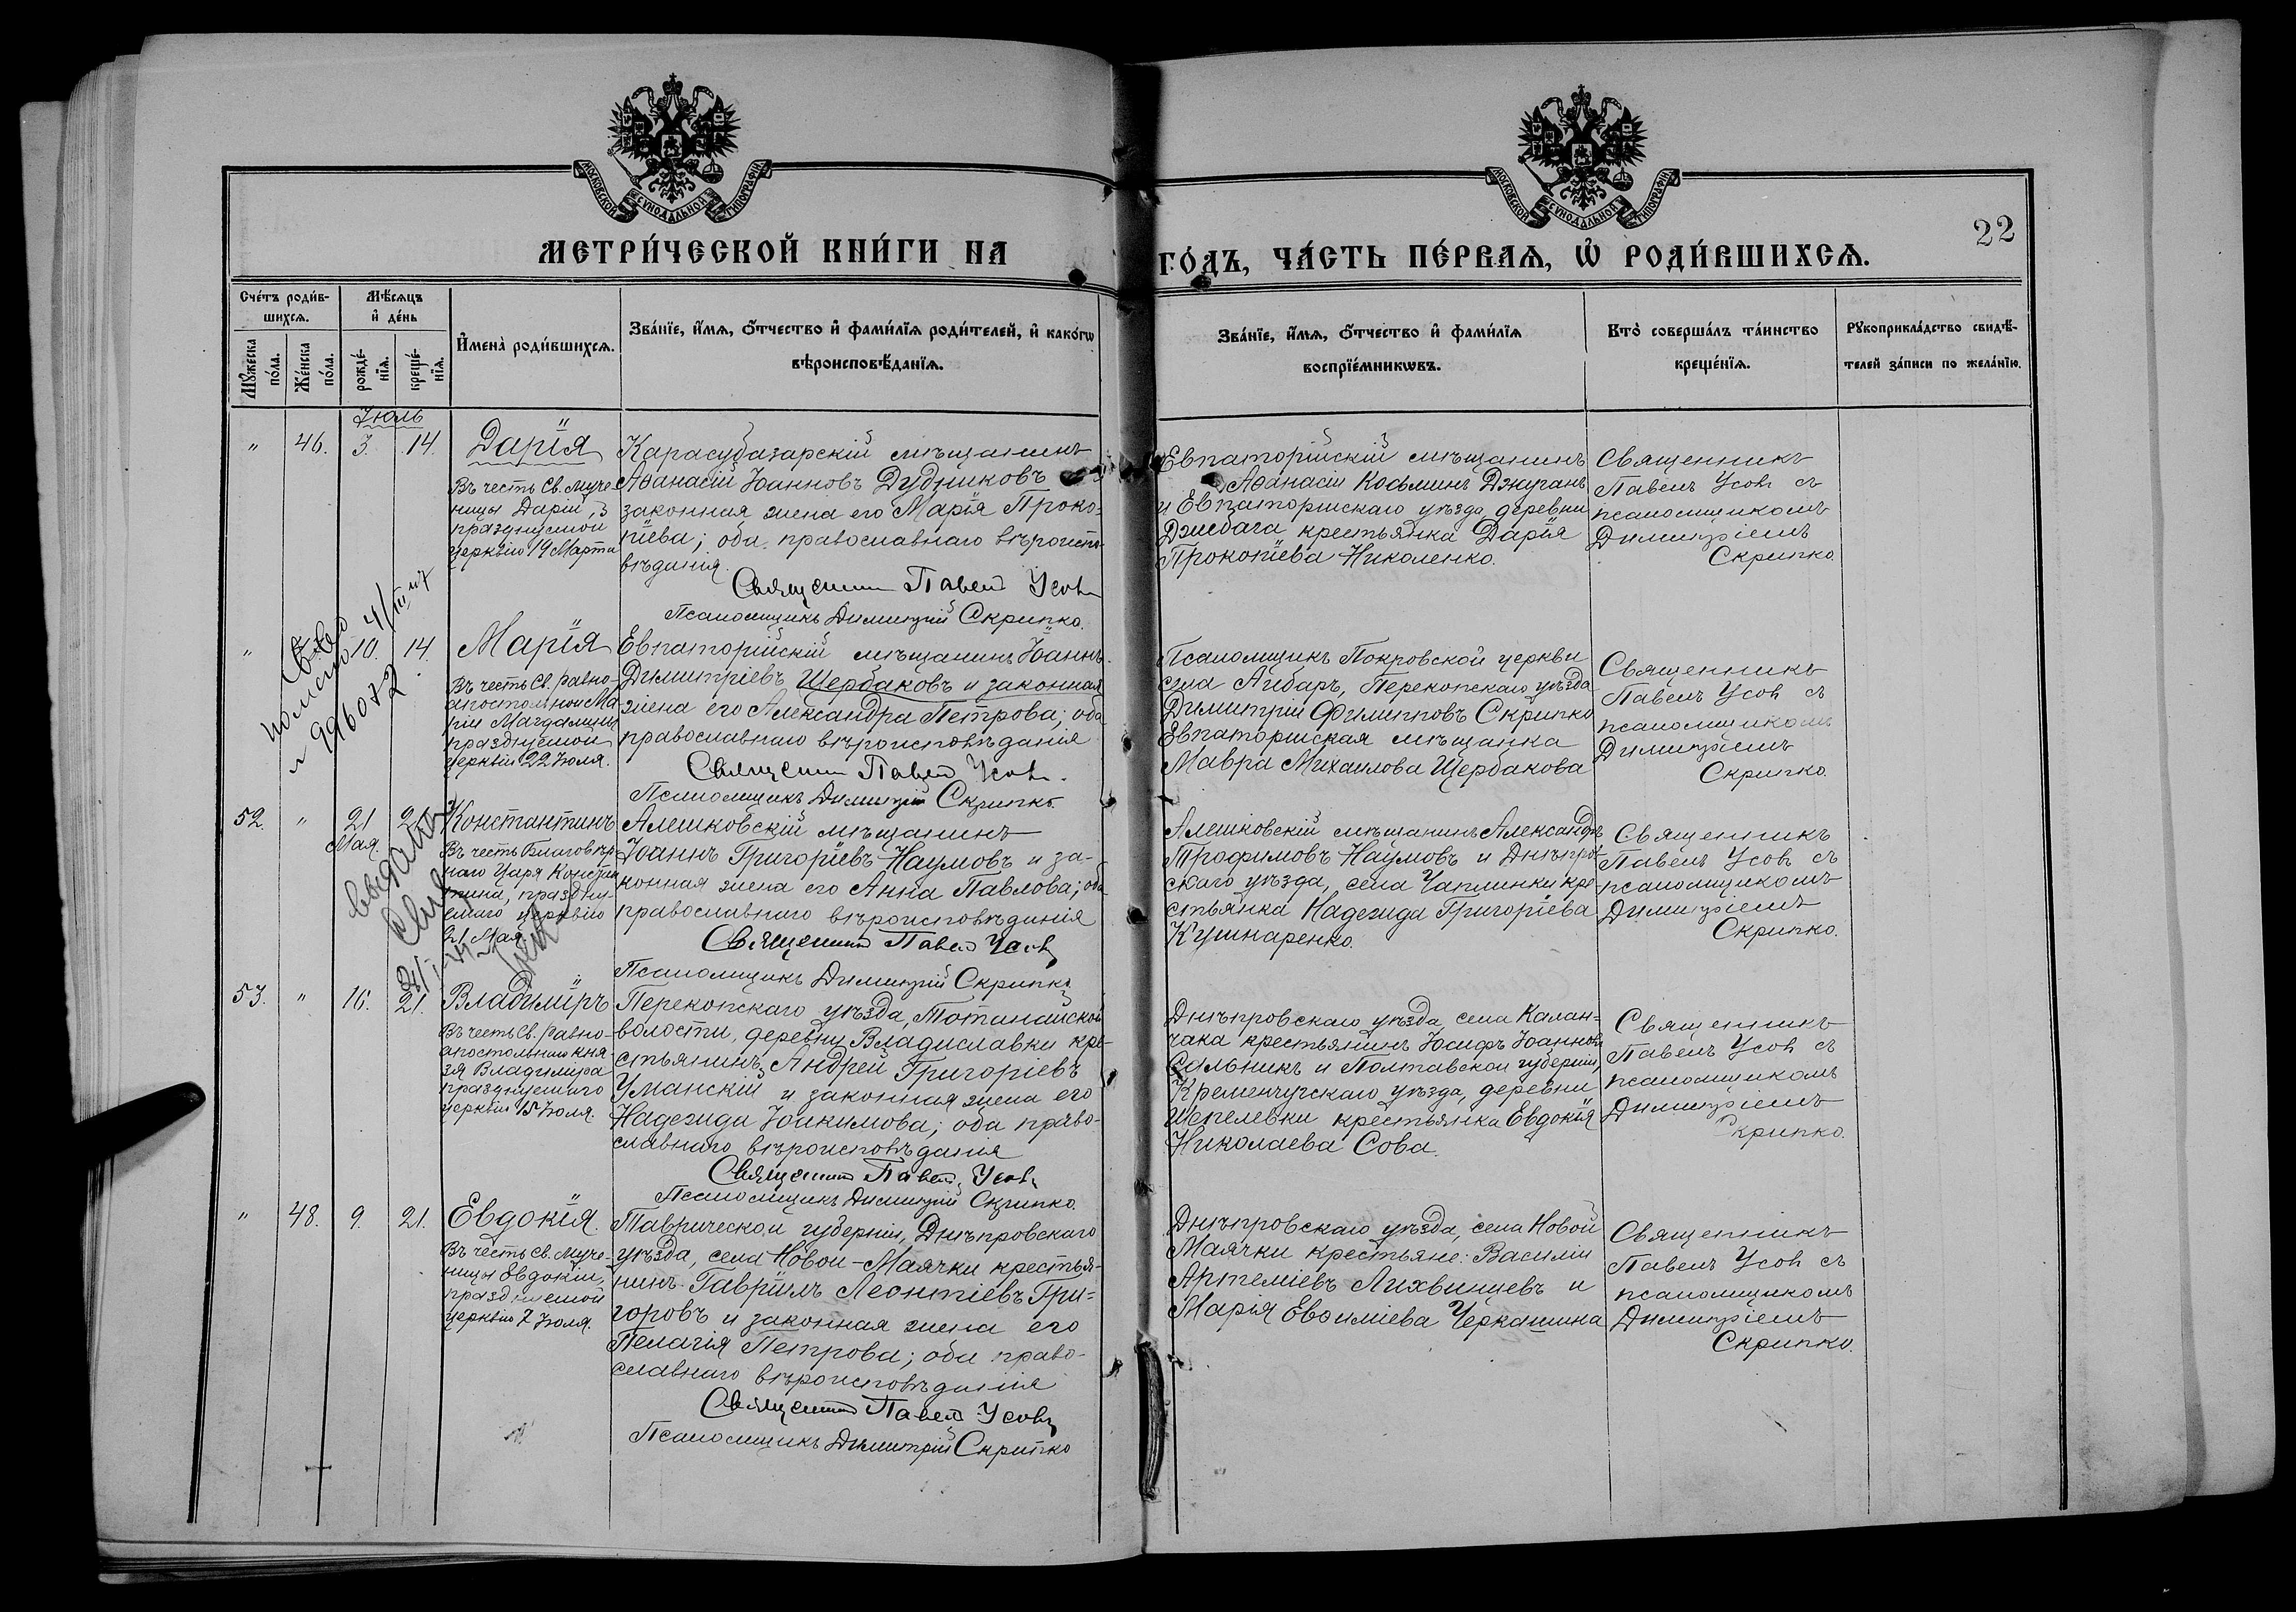 МОСКОВСКОЙ СУНОДАЛЬНОЙ ТИПОГРАФІИ
МОСКОВСКОЙ СУНОДАЛЬНОЙ ТИПОГРАФІИ
22
МЕТРИ́ЧЕСКОЙ КНИ́ГИ НА
ГО́ДЪ, ЧА́СТЬ ПЕ́РВАЯ, Ѽ РОДИ́ВШИХСЯ.
Сче́тъ роди́в-
шихся.
Мꙋжеска по́ла.
Же́нска по́ла.
Мѣ́сяцъ
и҆ де́нь
рожде́-
нїя.
креще́-
нїя.
И҆мена̀ роди́вшихся.
Зва́нїе, и҆́мя, ѻ҆́тчество и҆ фами́лїя роди́телей, и҆ како́гѡ
вѣроисповѣ́данїя.
Зва́нїе, и҆́мя, ѻ҆́тчество и҆ фами́лїя
воспрїе́мникѡвъ.
Кто̀ соверша́лъ та́инство
креще́нїя.
Рꙋкоприкла́дство свидѣ́-
телей за́писи по жела́нїю.
Іюль
" 46. 3. 14. Дарія
Въ честь Св. муче-
ницы Даріи,
празднуемой
церквію 19 Марта
Карасубазарскій мѣщанинъ
Аѳанасій Іоанновъ Дудниковъ и
законная жена его Марія Проко-
піева; оба православнаго вѣроиспо-
вѣданія.
Священникъ Павелъ Усовъ
Псаломщикъ Димитрій Скрипко.
Евпаторійскій мѣщанинъ
Аѳанасій Косьминъ Джуганъ
и Евпаторійскаго уѣзда, деревни
крестьянка Дарія
Прокопіева Николенко.
Священникъ
Павелъ Усовъ съ
псаломщикомъ
Димитріемъ
Скрипко.
" 10. 14. Марія
Въ честь Св. равно-
апостольной Ма-
ріи Магдалины
празднуемой
церквію 22 Іюля.
Евпаторійскій мѣщанинъ Іоаннъ
Димитріевъ Щербаковъ и законная
жена его Александра Петрова; оба
православнаго вѣроисповѣданія
Священникъ Павелъ Усовъ.
Псаломщикъ Димитрій Скрипко.
Псаломщикъ Покровской церкви
села Агбаръ, Перекопскаго уѣзда
Димитрій Филипповъ Скрипко
Евпаторійская мѣщанка
Мавра Михаилова Щербакова
Священникъ
Павелъ Усовъ съ
псаломщикомъ
Димитріемъ
Скрипко.
996072
52. " 21 21
Мая.
Константинъ
Въ честь Благовѣр-
наго Царя Констан-
тина, праздну-
емаго церквію
21 Мая
Алешковскій мѣщанинъ
Іоаннъ Григоріевъ Наумовъ и за-
конная жена его Анна Павлова; оба
православнаго вѣроисповѣданія
Священникъ Павелъ Усовъ
Псаломщикъ Димитрій Скрипко
Алешковскій мѣщанинъ Александръ
Трофимовъ Наумовъ и Днѣпров-
скаго уѣзда, села Чаплинки кре-
стьянка Надежда Григоріева
Кушнаренко.
Священникъ
Павелъ Усовъ съ
псаломщикомъ
Димитріемъ
Скрипко.
53. " 16. 21. Владиміръ
Въ честь Св. равно-
апостольнаго кня-
зя Владиміра
празднуемаго
церквію 15 Іюля.
Перекопскаго уѣзда, Тотанайской
волости, деревни Владиславки кре-
стьянинъ Андрей Григоріевъ
Уманскій и законная жена его
Надежда Іоакимова; оба право-
славнаго вѣроисповѣданія
Священникъ Павелъ Усовъ
Псаломщикъ Димитрій Скрипко.
Днѣпровскаго уѣзда села Калан-
чака крестьянинъ Іосифъ Іоанновъ
Сальникъ и Полтавской губерніи,
Кременчугскаго уѣзда, деревни
Шепелевки крестьянка Евдокія
Николаева Сова.
Священникъ
Павелъ Усовъ съ
псаломщикомъ
Димитріемъ
Скрипко.
" 48. 9. 21. Евдокія.
Въ честь Св. муче-
ницы Евдокіи,
празднуемой
церквію 7 Іюля.
Таврической губерніи, Днѣпровскаго
уѣзда, села Новой-Маячки крестья-
нинъ Гавріилъ Леонтіевъ Гри-
горовъ и законная жена его
Пелагія Петрова; оба право-
славнаго вѣроисповѣданія
Священникъ Павелъ Усовъ
Псаломщикъ Димитрій Скрипко
Днѣпровскаго уѣзда, села Новой
Маячки крестьяне: Василій
Артеміевъ Лихвинцевъ и
Марія Евѳиміева Черкашина
Священникъ
Павелъ Усовъ съ
псаломщикомъ
Димитріемъ
Скрипко.